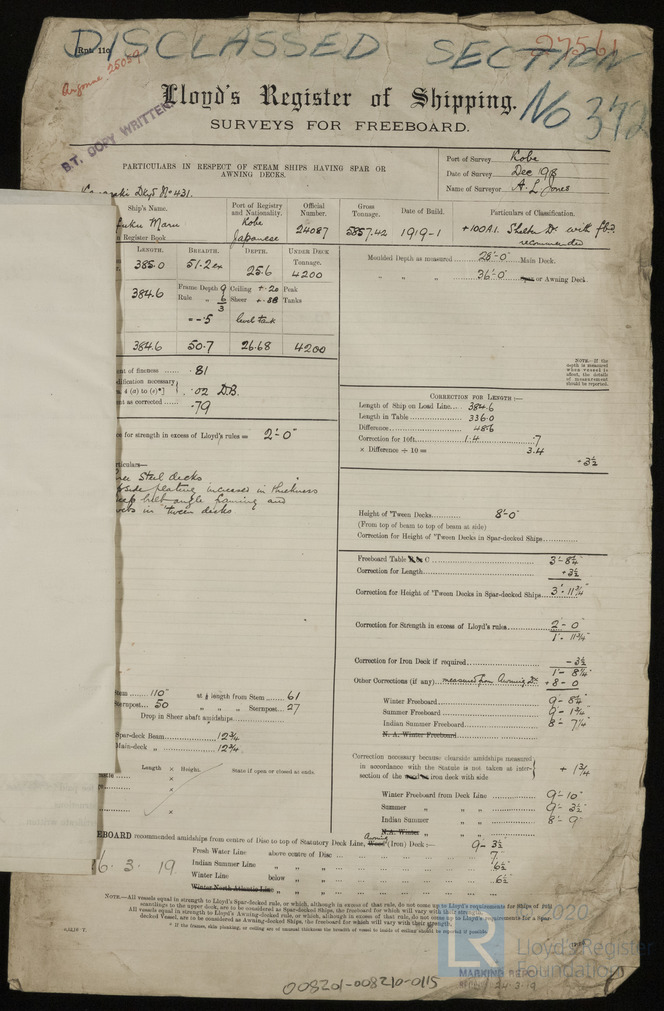 DISCLASSED SECTION
Rpt. 11c.
27561
No 342
Lloyd's Register of Shipping.
SURVEYS FOR FREEBOARD.
B.T. COPY WRITTEN
PARTICULARS IN RESPECT OF STEAM SHIPS HAVING SPAR OR
AWNING DECKS.
Port of Survey Kobe
Date of Survey Dec 98
Name of Surveyor A. L. Jones
Kawasaki Dkyd No 431.
Ship's Name. Port of Registry and Nationality. Official Number. Gross Tonnage. Date of Build. Particulars of Classification.
fuku Maru Kobe Japanese 24087 5857.42 1919-1 +100A1. Shelter Dk with fbd. recommended
n Register Book
LENGTH. BREADTH. DEPTH. UNDER DECK Tonnage.
385.0 51.2 ex 25.6 4200
384.6 Frame Depth 9 Ceiling +.20 Peak
Rule " 6 Sheer +.88 Tanks
3
= -.5 level tank
384.6 50.7 26.68 4200
Moulded Depth as measured 28'-0" Main Deck.
" " " 36'-0" Spar or Awning Deck.
NOTE.—If the
depth is measured
when vessel is
afloat, the details
of measurement
should be reported.
ent of fineness .81
dification necessary
s. 4 (a) to (e)*] .02 D.B.
ent as corrected .79
ce for strength in excess of Lloyd's rules = 2'-0"
CORRECTION FOR LENGTH:—
Length of Ship on Load Line 384.6
Length in Table 336.0
Difference 48.6
Correction for 10ft. 1.4 .7
× Difference ÷ 10 = 3.4
+3½
rticulars—
ree Steel decks
side plating increased in thickness
deep bulb angle framing and
in 'tween decks
Height of 'Tween Decks 8'-0"
(From top of beam to top of beam at side)
Correction for Height of 'Tween Decks in Spar-decked Ships
Freeboard Table C 3'-8¼"
Correction for Length +3½
Correction for Height of 'Tween Decks in Spar-decked Ships 3'-11¾"
Correction for Strength in excess of Lloyd's rules 2'-0"
1'-11¾"
Correction for Iron Deck if required -3½
1'-8¼"
Other Corrections (if any) measured from Awning Dk. +8-0
Winter Freeboard 9-8¼"
Summer Freeboard 9'-1¾"
Indian Summer Freeboard 8'-7¼"
N. A. Winter Freeboard
Stem 110" at ¼ length from Stem 61
Sternpost 50 " " " Sternpost 27
Drop in Sheer abaft amidships
Spar-deck Beam 12¾
Main-deck " 12¾
Length × Height. State if open or closed at ends.
Correction necessary because clearside amidships measured
in accordance with the Statute is not taken at inter-
section of the wood or iron deck with side + 1¾
Winter Freeboard from Deck Line 9'-10"
Summer " " " 9'-3½"
Indian Summer " " 8'-9"
N.A. Winter " " "
EBOARD recommended amidships from centre of Disc to top of Statutory Deck Line, Awning Wood (Iron) Deck :— 9-3½
Fresh Water Line above centre of Disc 7"
6. 3. 19. Indian Summer Line " " " 6½"
Winter Line below " " 6½"
Winter North Atlantic Line " " "
NOTE.—All vessels equal in strength to Lloyd's Spar-decked rule, or which, although in excess of that rule, do not come up to Lloyd's requirements for Ships of full
scantlings to the upper deck, are to be considered as Spar-decked Ships, the freeboard for which will vary with their strength.
All vessels equal in strength to Lloyd's Awning-decked rule, or which, although in excess of that rule, do not come up to Lloyd's requirements for a Spar-
decked Vessel, are to be considered as Awning-decked Ships, the freeboard for which will vary with their strength.
© 2020
LR Lloyd's Register
Foundation
24-3-19
008201-008210-0115